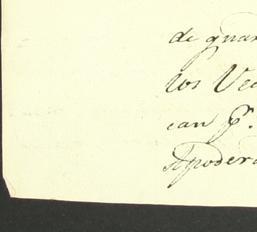 de guar
los Vec
can P.
Apodera